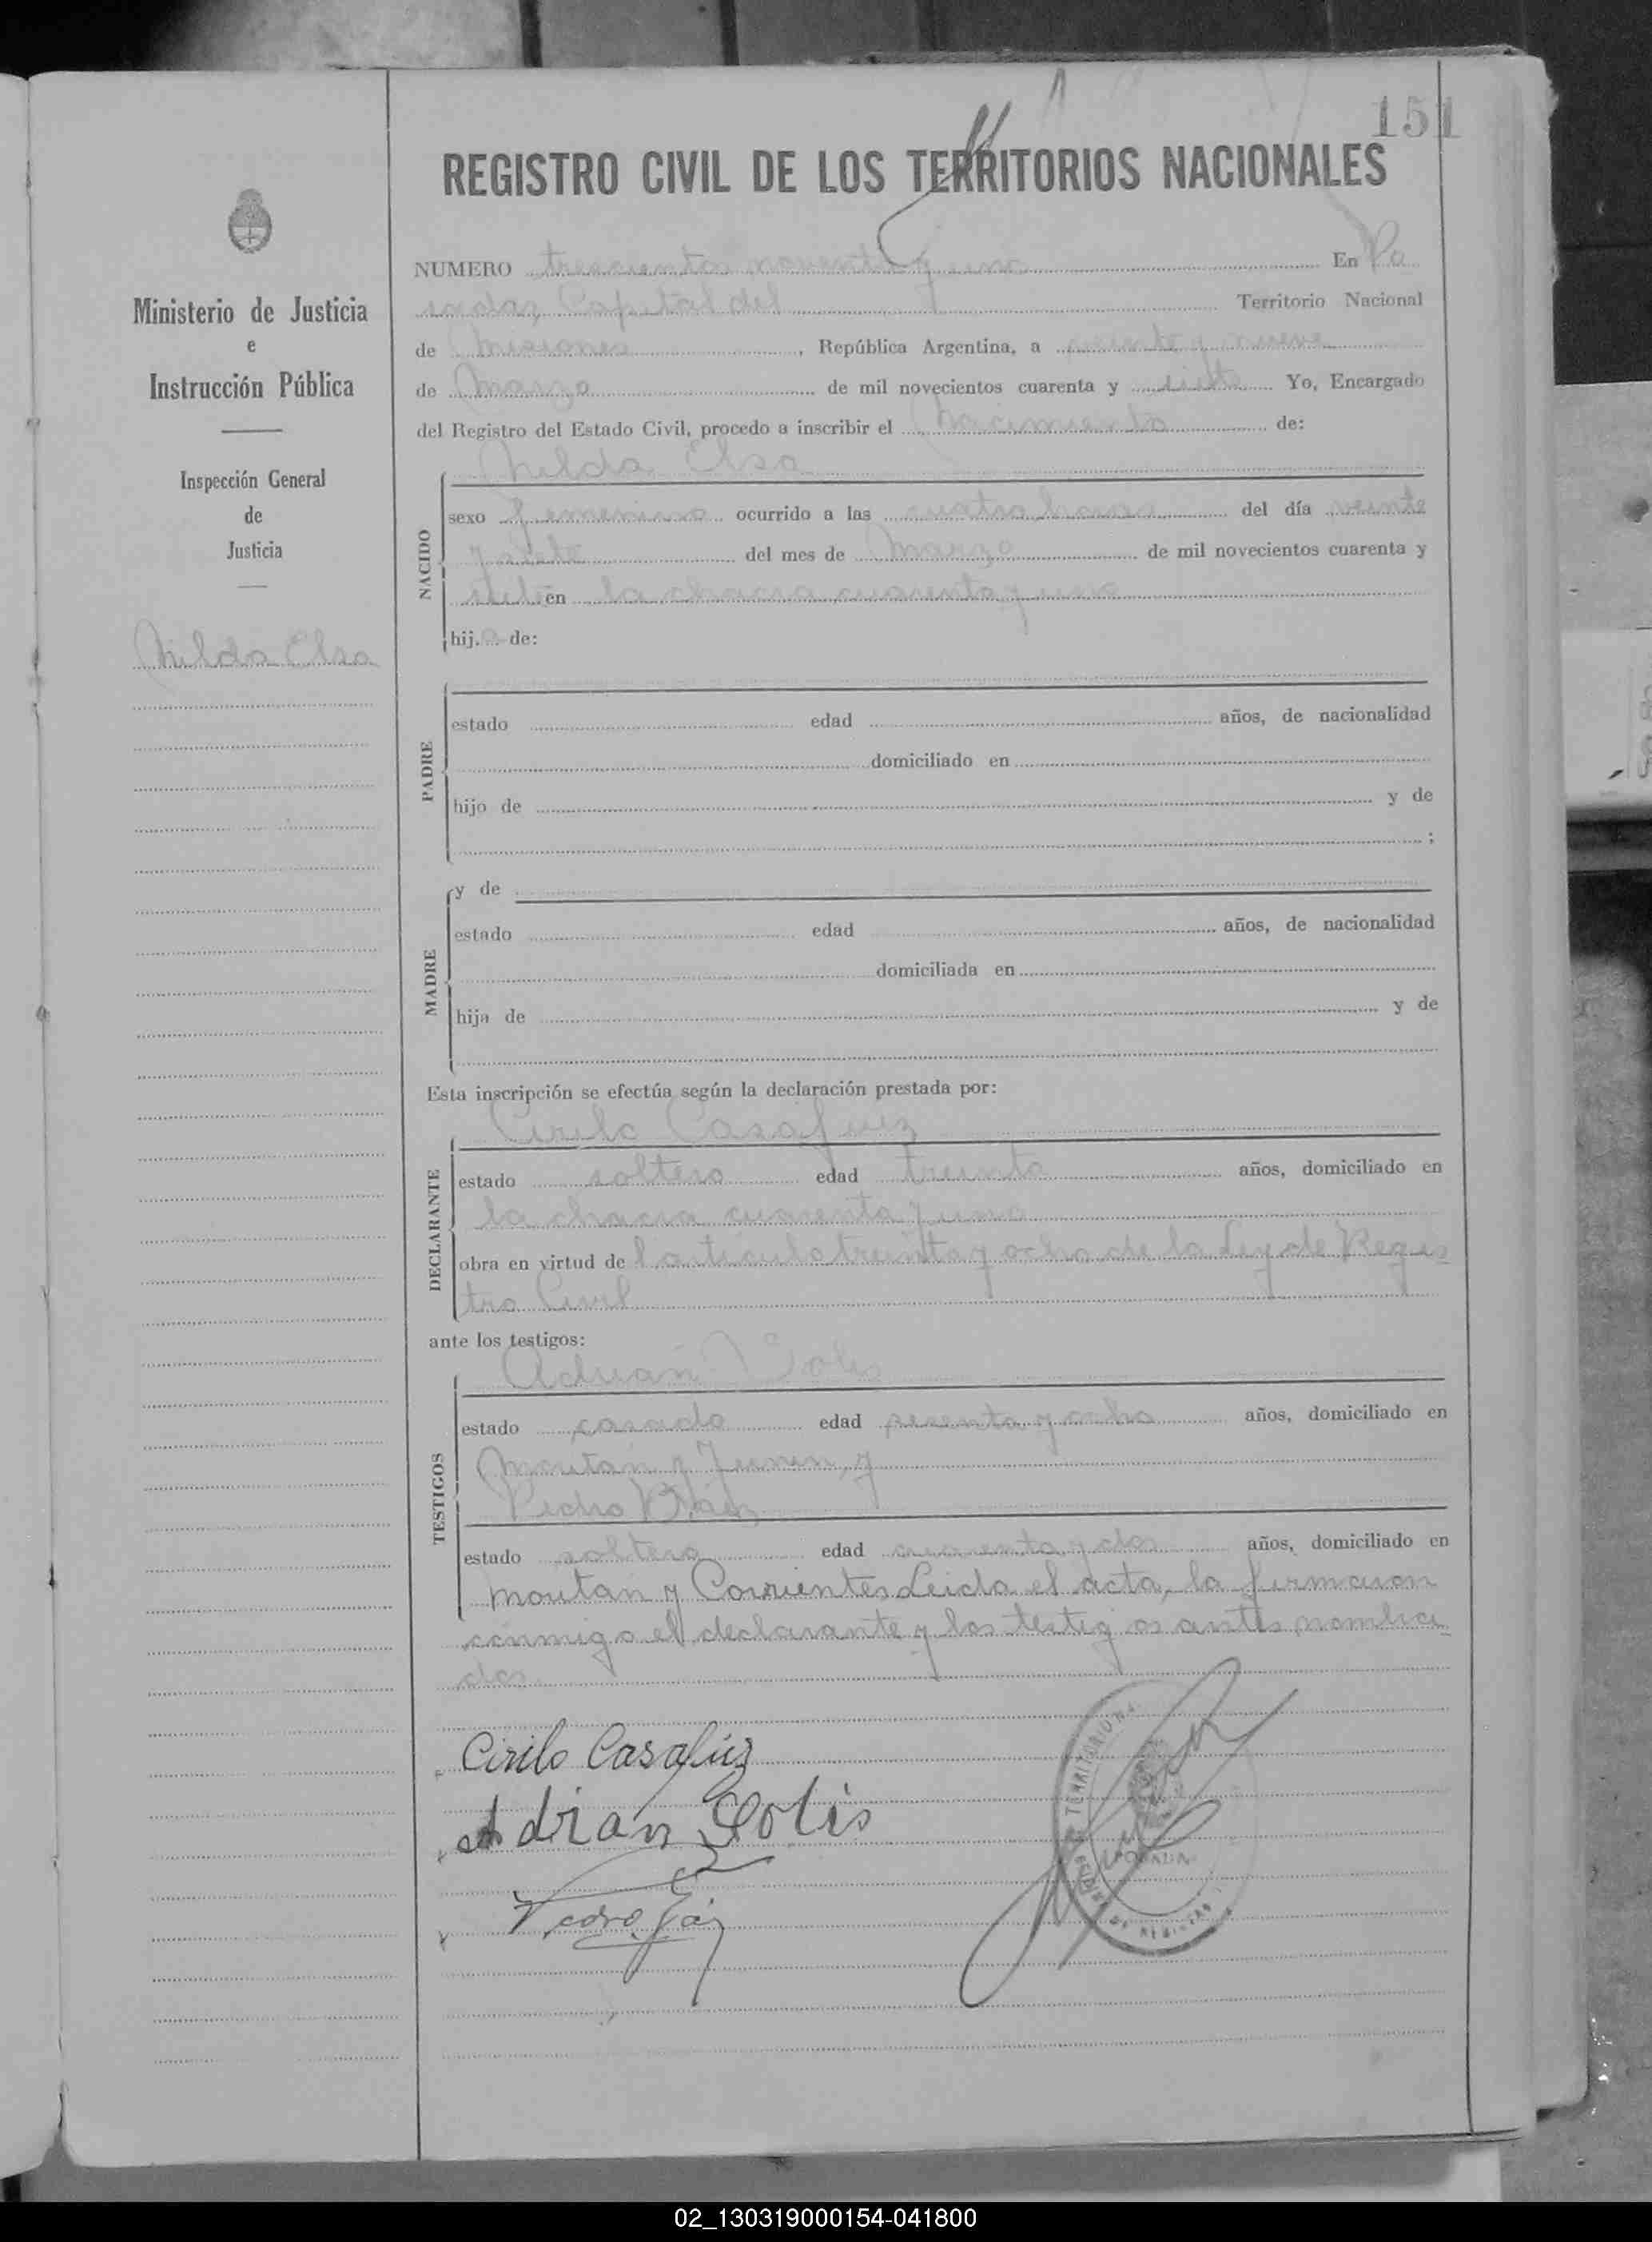 151
REGISTRO CIVIL DE LOS TERRITORIOS NACIONALES
Ministerio de Justicia
e
Instrucción Pública
Inspección General
de
Justicia
Nilda Elsa
NUMERO trescientos noventa y uno En Po
sadas, Capital del Territorio Nacional
de Misiones, República Argentina, a veinte y nueve
de Marzo de mil novecientos cuarenta y siete Yo, Encargado
del Registro del Estado Civil, procedo a inscribir el Nacimiento de:
Nilda Elsa
NACIDO
sexo femenino ocurrido a las cuatro horas del día veinte
y siete del mes de Marzo de mil novecientos cuarenta y
siete en la chacra cuarenta y uno
hija de:
PADRE
estado edad años, de nacionalidad
domiciliado en
hijo de y de
;
MADRE
y de
estado edad años, de nacionalidad
domiciliada en
hija de y de
Esta inscripción se efectúa según la declaración prestada por:
Cirilo Casafúz
DECLARANTE
estado soltero edad treinta años, domiciliado en
la chacra cuarenta y uno
obra en virtud de l articulo treinta y ocho de la Ley de Regis
tro Civil
ante los testigos:
Adrian Solis
TESTIGOS
estado casado edad sesenta y ocho años, domiciliado en
Moutan y Junin, y
Pedro Báez
estado soltero edad cuarenta y dos años, domiciliado en
Moutan y Corrientes Leida el acta, la firmaron
conmigo el declarante y los testigos antes nombra
dos
Cirilo Casafúz
Adrian Solis
Pedro
02_130319000154-041800